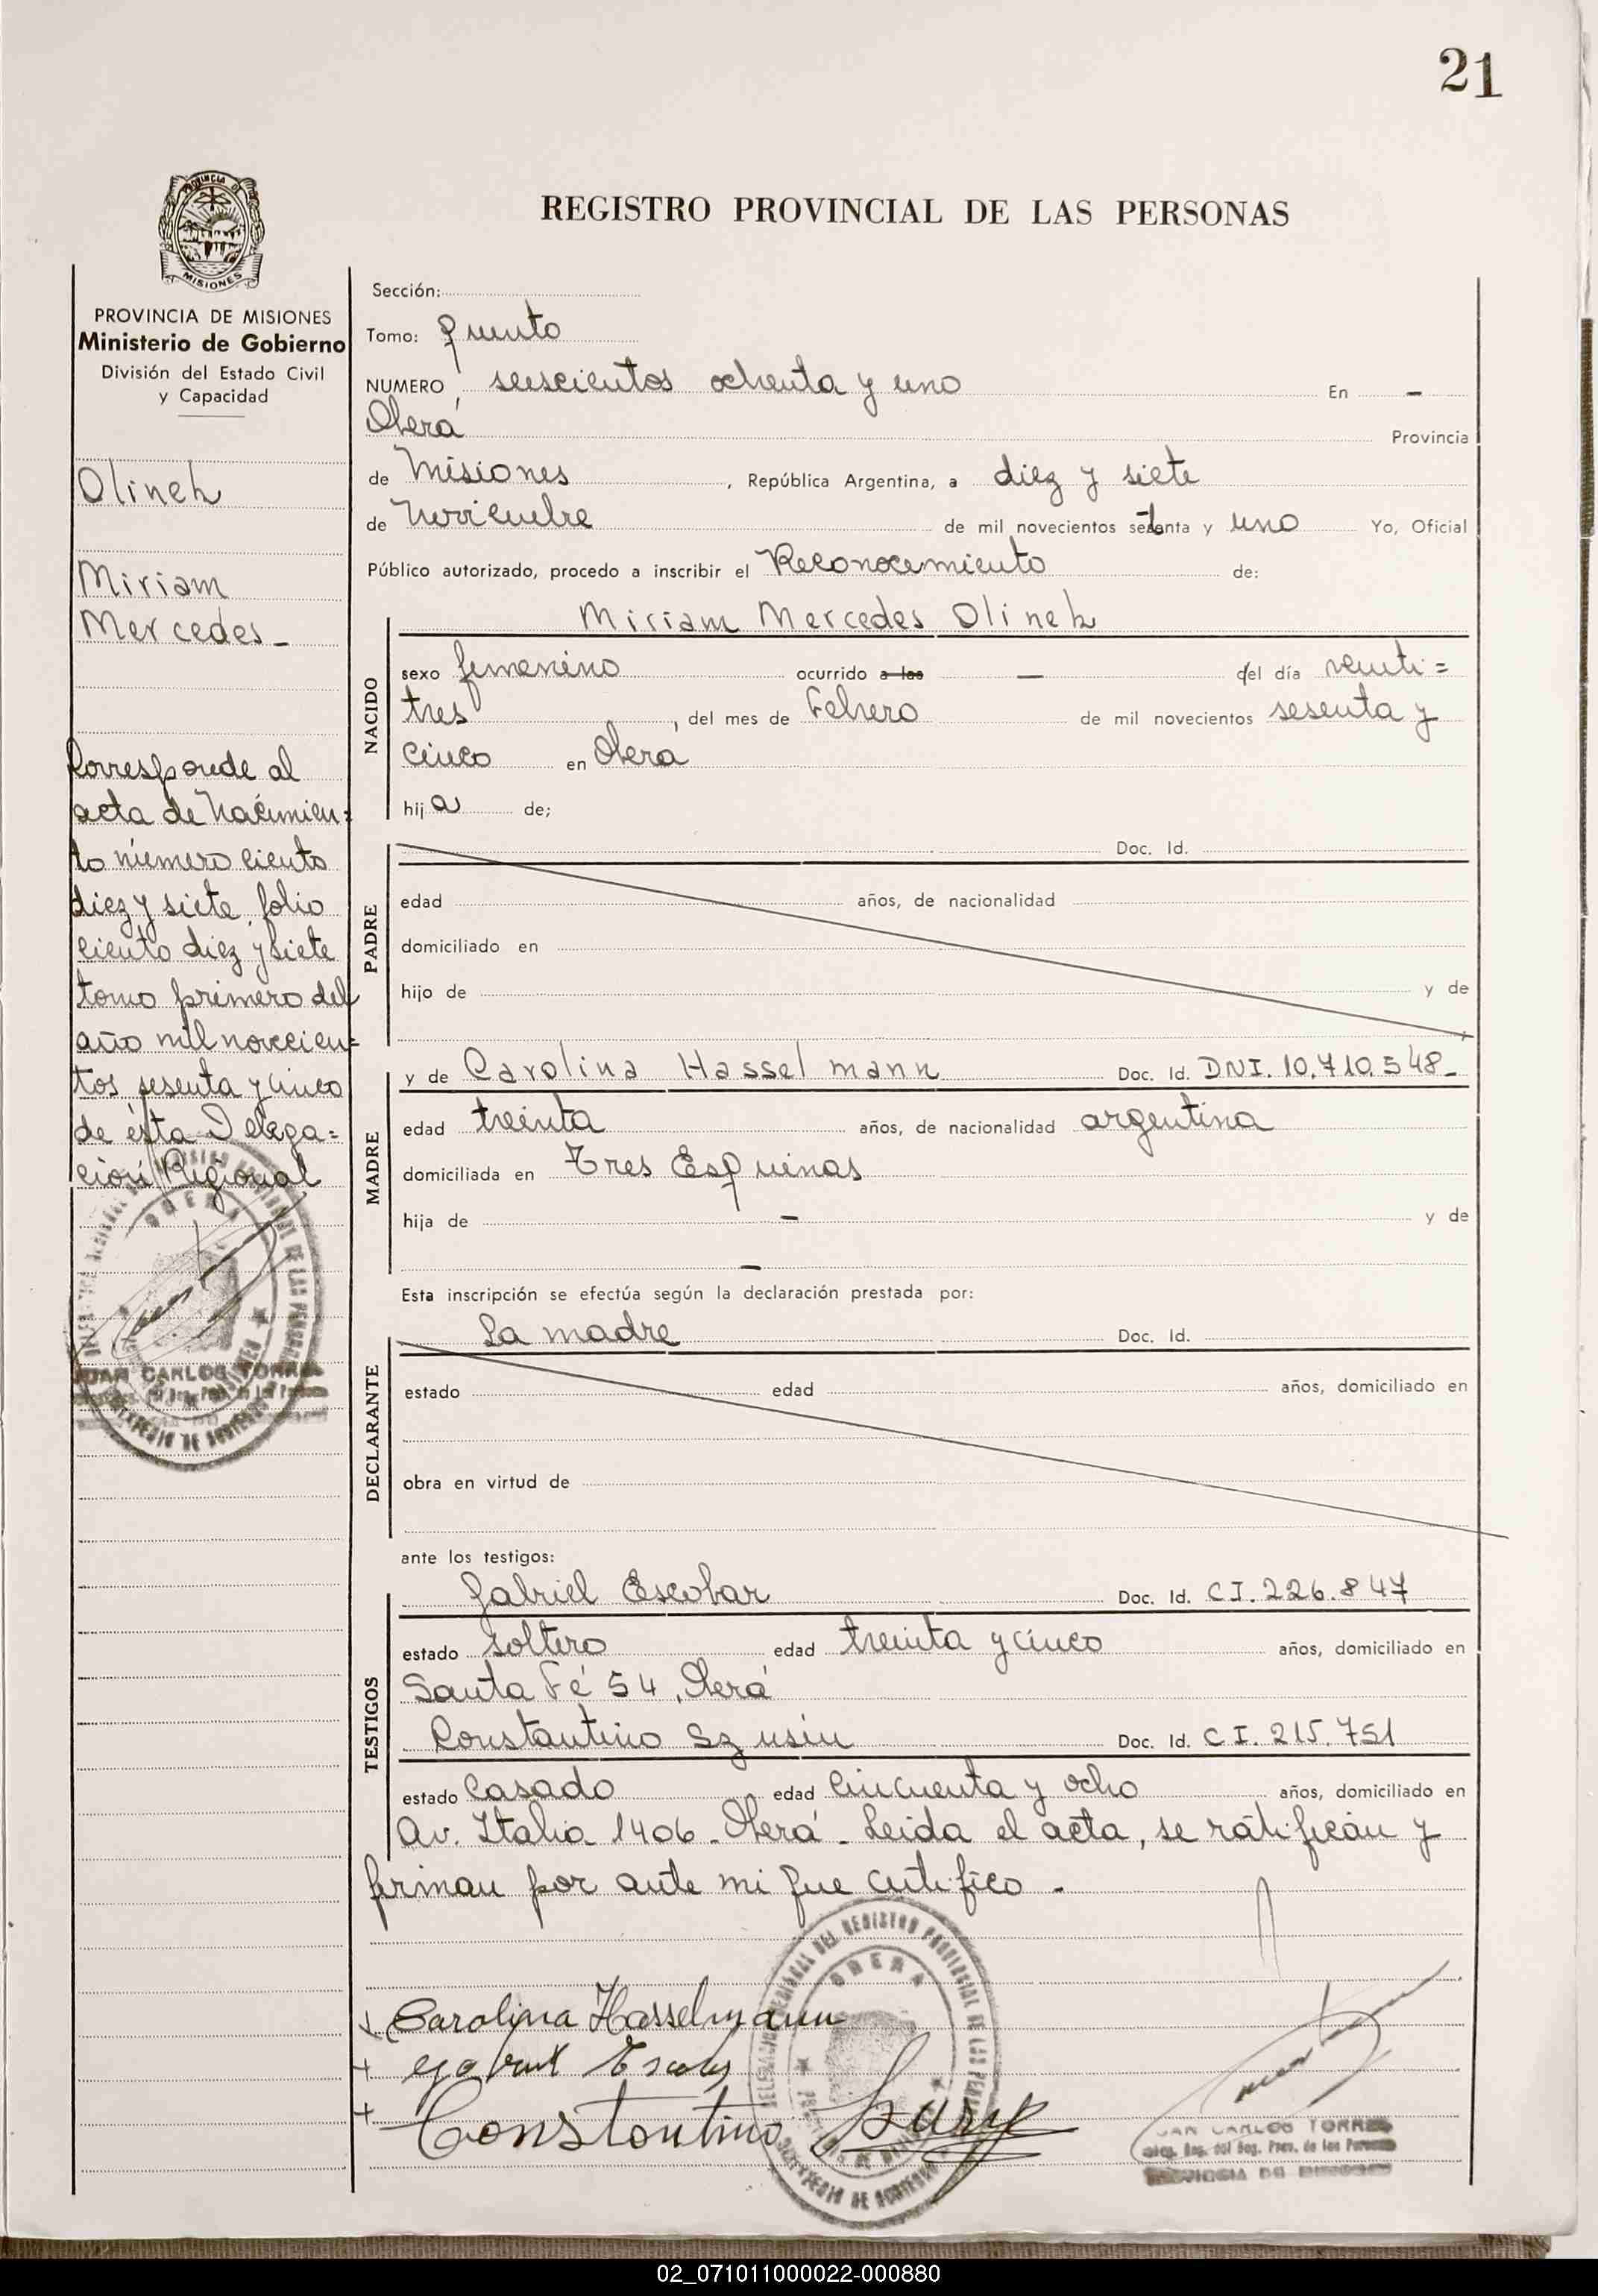 21
REGISTRO PROVINCIAL DE LAS PERSONAS
PROVINCIA DE MISIONES
Ministerio de Gobierno
División del Estado Civil
y Capacidad
Olineh
Miriam
Mercedes_
Corresponde al
acta de Nacimien=
to número ciento
diez y siete, folio
ciento diez y siete
tomo primero del
año mil novecien=
tos sesenta y cinco
de ésta Delega=
ción Regional
OBERA
JUAN CARLOS TORRES
Sección:
Tomo: quinto
NUMERO seiscientos ochenta y uno En -
Oberá Provincia
de Misiones, República Argentina, a diez y siete
de Noviembre de mil novecientos setenta y uno Yo, Oficial
Público autorizado, procedo a inscribir el Reconocimiento de:
Miriam Mercedes Olineh
NACIDO
sexo femenino ocurrido a las — del día veinti=
tres, del mes de Febrero de mil novecientos sesenta y
cinco en Oberá
hija de;
PADRE
Doc. Id.
edad años, de nacionalidad
domiciliado en
hijo de y de
MADRE
y de Carolina Hasselmann Doc. Id. DNI. 10.710.548_
edad treinta años, de nacionalidad argentina
domiciliada en Tres Esquinas
hija de - y de
-
Esta inscripción se efectúa según la declaración prestada por:
DECLARANTE
La madre Doc. Id.
estado edad años, domiciliado en
obra en virtud de
ante los testigos:
TESTIGOS
Gabriel Escobar Doc. Id. CI.226.847
estado soltero edad treinta y cinco años, domiciliado en
Santa Fé 54, Oberá
Constantino Szusin Doc. Id. CI. 215.751
estado casado edad cincuenta y ocho años, domiciliado en
Av. Italia 1406_ Oberá_ Leida el acta, se ratifican y
firman por ante mi que certifico -
+ Carolina Hasselmann
+ Escobar
+ Constantino
OBERA
JUAN CARLOS TORRES
Deleg. Reg. del Reg. Prov. de las Personas
PROVINCIA DE MISIONES
02_071011000022-000880